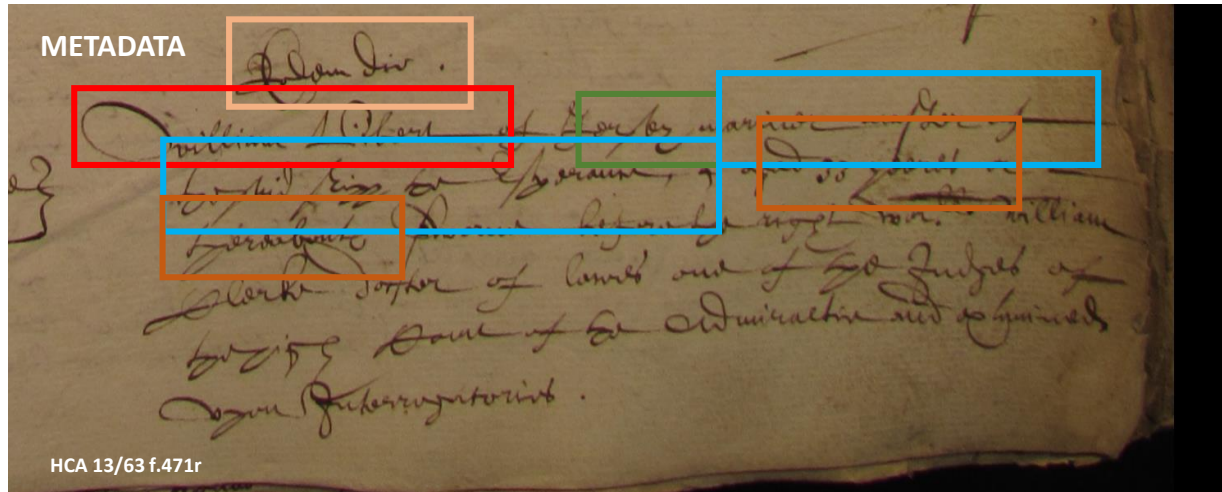 METADATA
Eodem die .
William Gibert of Jersey mariner master of
the said shipp the Esperance, aged 30 yeares or
thereabouts sworne before the right wor:ll William
Clerke doctor of lawes one of the Judges of
the high Court of the Admiraltie and examined
upon Interrogatories .
HCA 13/63 f.471r